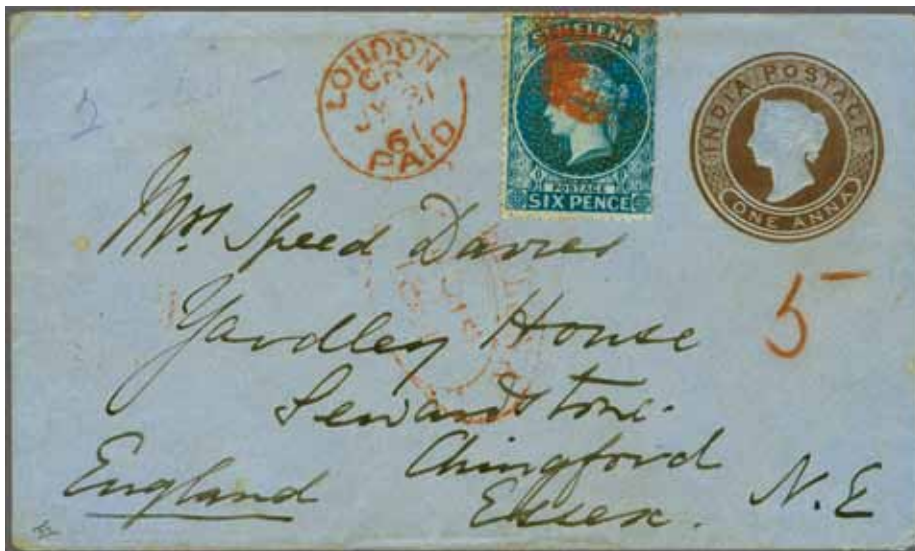 LONDON
CR
JY 31
61
PAID
ST. HELENA
POSTAGE
SIX PENCE
INDIA POSTAGE
ONE ANNA
Mrs Speed Davies
Yardley House
5
Sewardstone.
Chingford
England
Essex. N. E